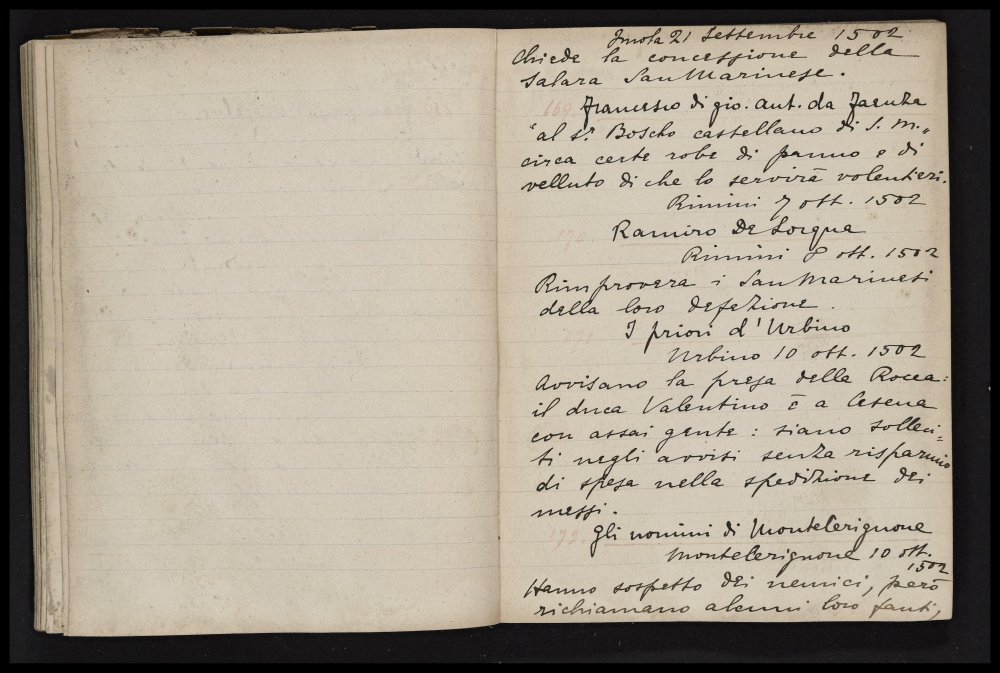 Imola 21 Settembre 1502
Chiede la concessione della
Salara SanMarinese.
169.
Francesco di gio. ant. da Faenza
"al Sr. Boscho castellano di S. M.„
circa certe robe di panno e di
velluto di che lo servirà volentieri.
Rimini 7 ott. 1502
170.
Ramiro De Lorqua
Rimini 8 ott. 1502
Rimprovera i SanMarinesi
della loro defezione.
171.
I priori d'Urbino
Urbino 10 ott. 1502
Avvisano la presa della Rocca:
il duca Valentino è a Cesena
con assai gente: siano solleci=
ti negli avvisi senza risparmio
di spesa nella spedizione dei
messi.
172.
Gli uomini di MonteCerignone
MonteCerignone 10 ott.
1502
Hanno sospetto dei nemici, però
richiamano alcuni loro fanti,